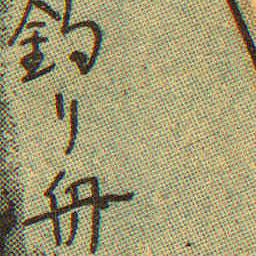 釣り舟